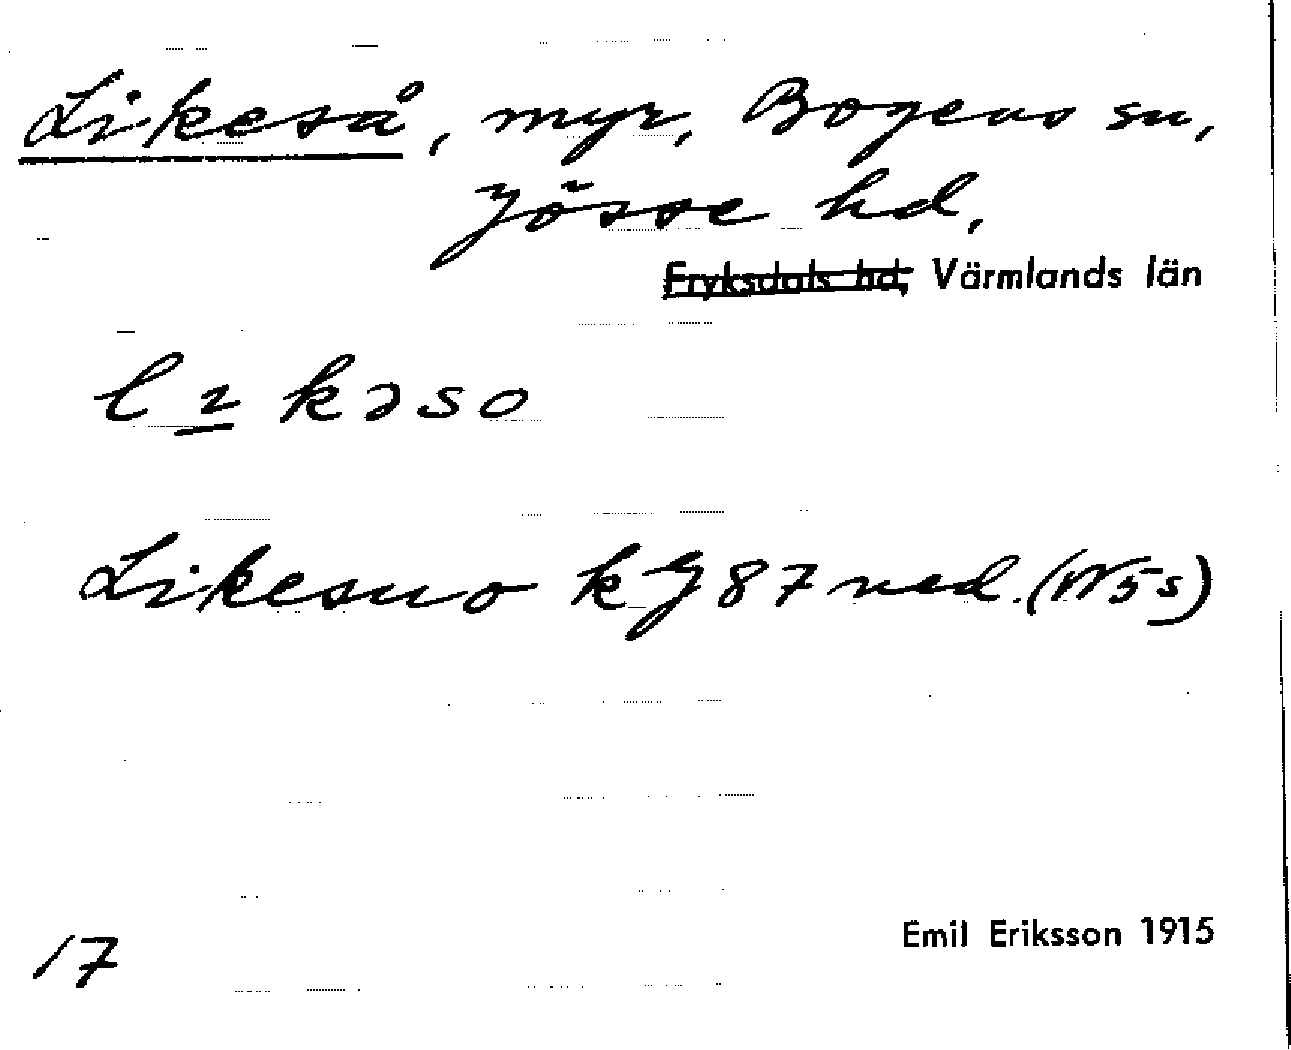 Likeså, myr, Bogens sn,
Jösse hd,
Fryksdals hd, Värmlands län
l ɩ kəso
Likesuo kJ 87 ned. (W5s)
17
Emil Eriksson 1915